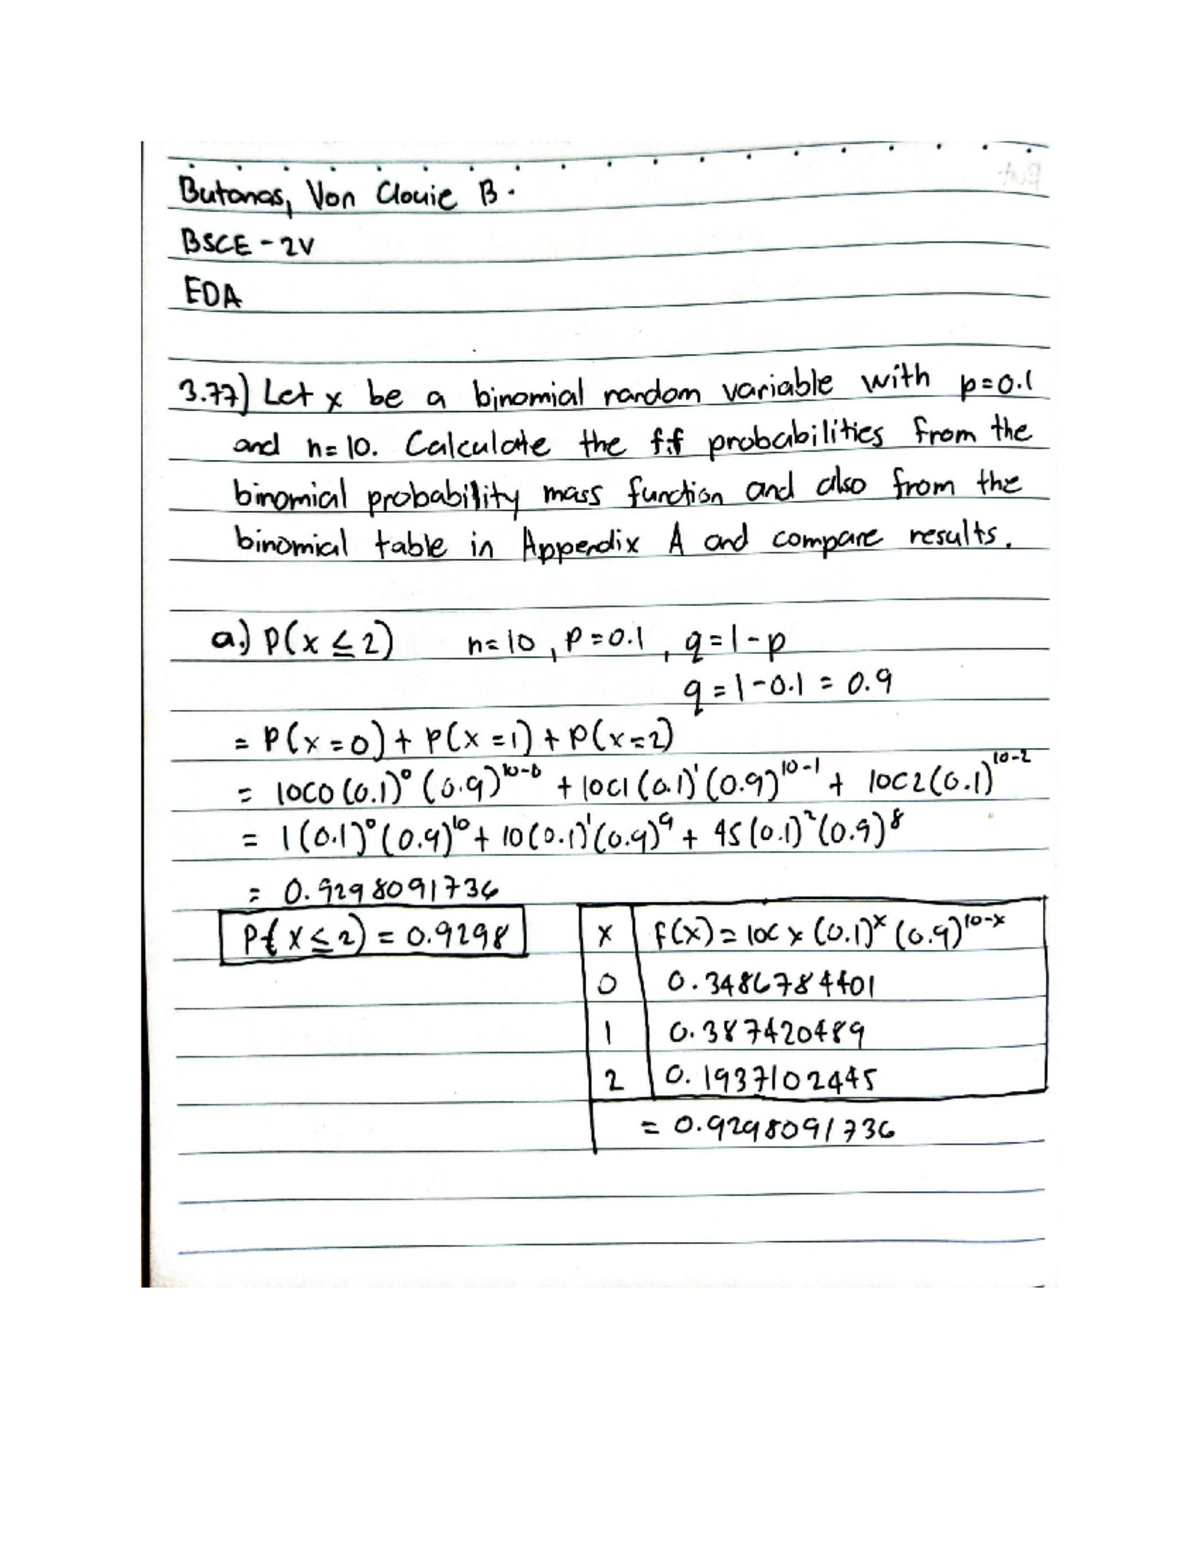 Butanas, Von Clouie B.
BSCE - 2V
EDA
3.77) Let x be a binomial random variable with p=0.1
and n=10. Calculate the f.f probabilities from the
binomial probability mass function and also from the
binomial table in Appendix A and compare results.
a.) P(x ≤ 2) n=10, p=0.1, q=1-p
q=1-0.1 = 0.9
= P(x=0) + P(x=1) + P(x=2)
= 10C0 (0.1)⁰ (0.9)¹⁰⁻⁰ + 10C1 (0.1)¹ (0.9)¹⁰⁻¹ + 10C2 (0.1)¹⁰⁻²
= 1(0.1)⁰(0.9)¹⁰ + 10(0.1)¹(0.9)⁹ + 45(0.1)²(0.9)⁸
= 0.9298091736
P{x≤2) = 0.9298
x f(x) = 10Cx (0.1)ˣ (0.9)¹⁰⁻ˣ
0 0.3486784401
1 0.387420489
2 0.1937102445
= 0.9298091736